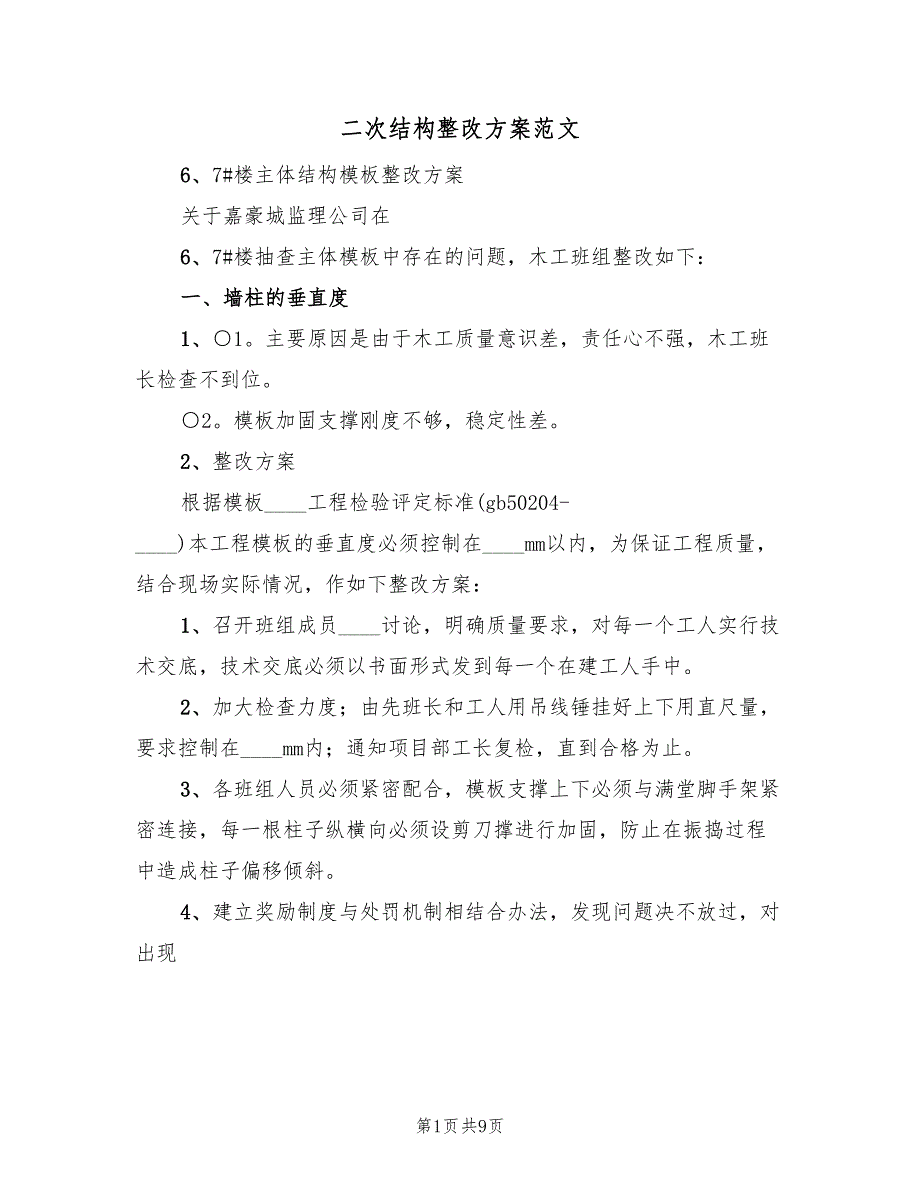 二次结构整改方案范文
6、7#楼主体结构模板整改方案
关于嘉豪城监理公司在
6、7#楼抽查主体模板中存在的问题，木工班组整改如下：
一、墙柱的垂直度
1、〇1。主要原因是由于木工质量意识差，责任心不强，木工班
长检查不到位。
〇2。模板加固支撑刚度不够，稳定性差。
2、整改方案
根据模板____工程检验评定标准(gb50204-
____)本工程模板的垂直度必须控制在____mm以内，为保证工程质量，
结合现场实际情况，作如下整改方案：
1、召开班组成员____讨论，明确质量要求，对每一个工人实行技
术交底，技术交底必须以书面形式发到每一个在建工人手中。
2、加大检查力度；由先班长和工人用吊线锤挂好上下用直尺量，
要求控制在____mm内；通知项目部工长复检，直到合格为止。
3、各班组人员必须紧密配合，模板支撑上下必须与满堂脚手架紧
密连接，每一根柱子纵横向必须设剪刀撑进行加固，防止在振捣过程
中造成柱子偏移倾斜。
4、建立奖励制度与处罚机制相结合办法，发现问题决不放过，对
出现
第1页 共9页